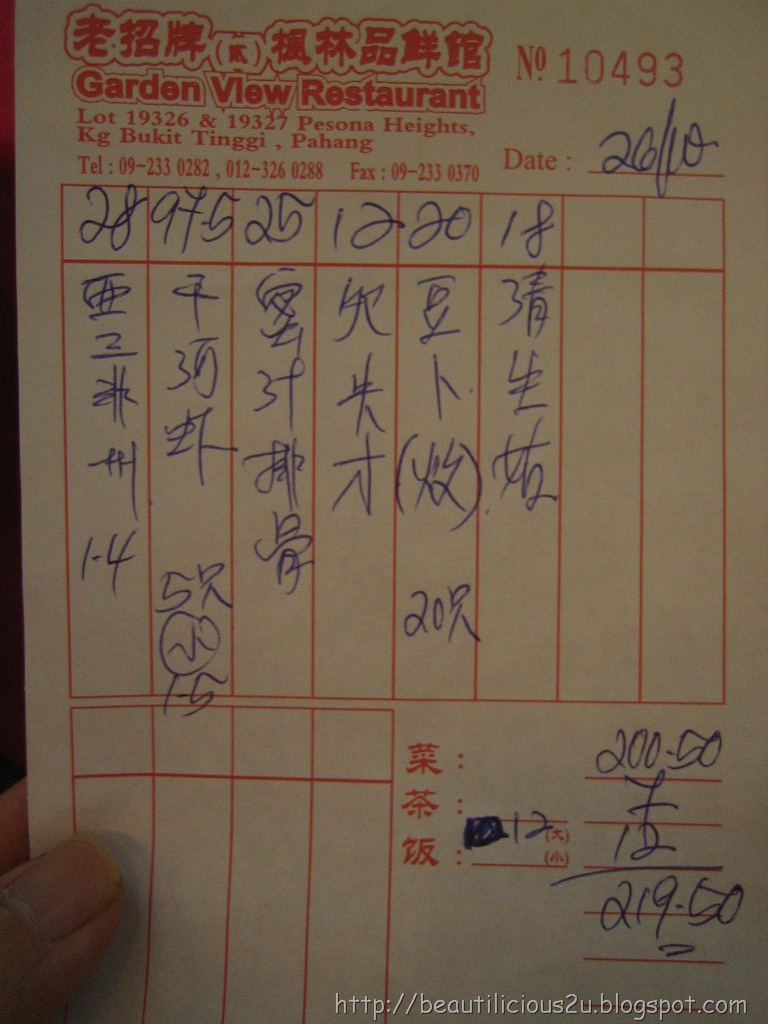 老招牌(贰)楓林品鮮館
Garden View Restaurant
Lot 19326 & 19327 Pesona Heights,
Kg Bukit Tinggi , Pahang
Tel : 09-233 0282 , 012-326 0288 Fax : 09-233 0370
№ 10493
Date : 26/10
28 97.5 25 12 20 18
亚三非州 1.4
干河虾 5只 小 1.5
蜜汁排骨
豆卜 20只
清生
菜 : 200.50
茶 : 7
饭 : 12 (大) 12
(小)
219.50
http://beautilicious2u.blogspot.com